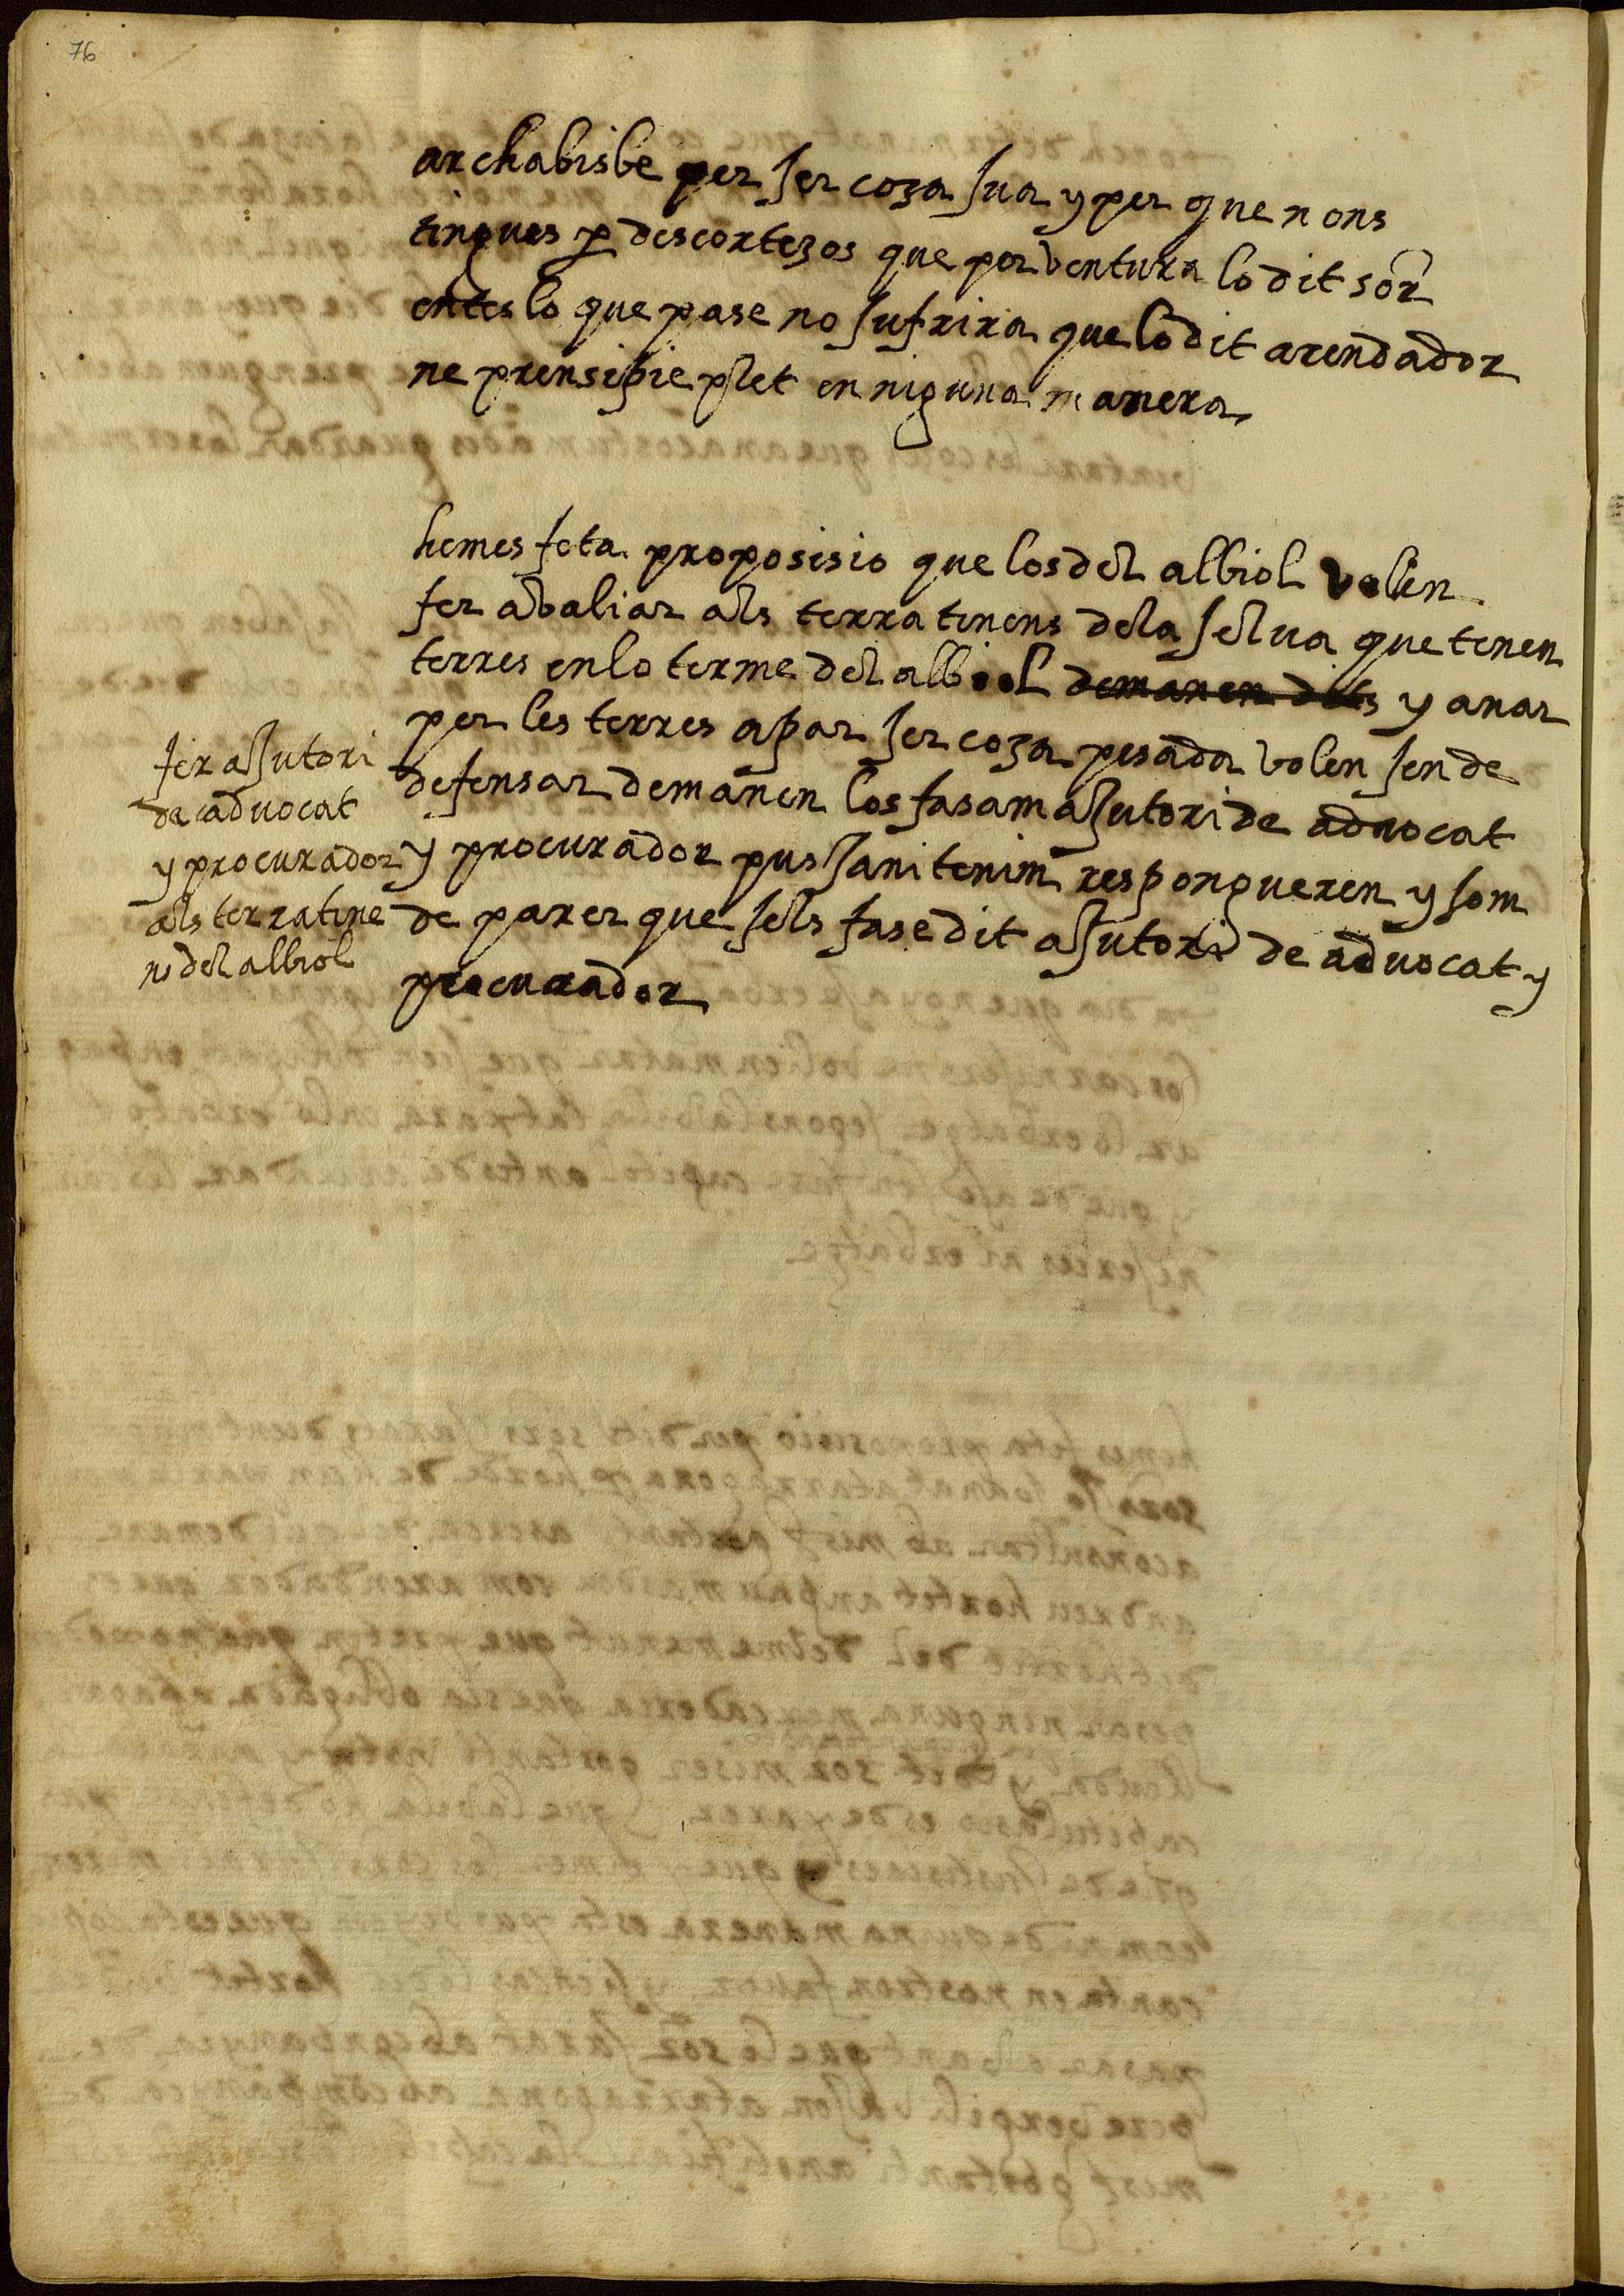 76
archabisbe per ser coza sua y per que nons
tingues p descortezos que per ventura lo dit sor
entes lo que pase no sufrira que lo dit arendador
ne prensipie plet en niguna manera
hemes feta proposisio que los del albiol volen
fer abaliar als terratinens de la selva que tenen
terres en lo terme del albiol demanen dits y anar
per les terres apar ser coza pesada volen sen de
defensar demanen los fasam assutori de advocat
y procurador pus sani tenim respongueren y som
de parer que sels fase dit assutori de advocat y
procurador
fer assutori
de advocat
y procurador
als terratine
ns del albiol